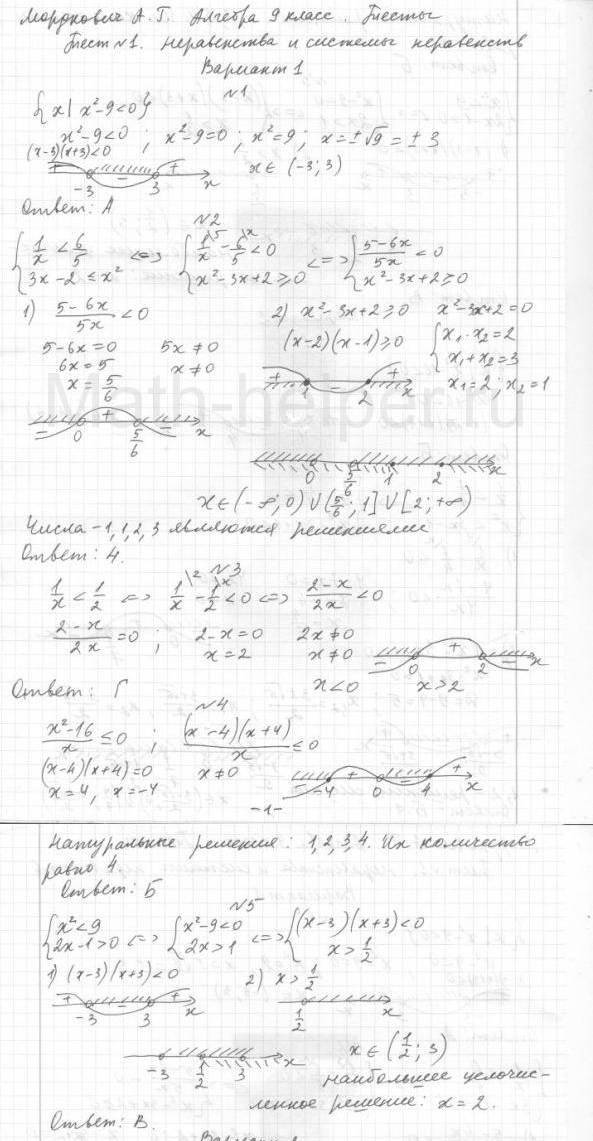 Мордкович А. Г. Алгебра 9 класс. Тесты
Тест №1. Неравенства и системы неравенств
Вариант 1
№1
{x| x²-9<0}
x²-9<0 ; x²-9=0 ; x²=9 ; x=±√9=±3
(x-3)(x+3)<0
+ - +
-3 3 x
x∈ (-3; 3)
Ответ: А
№2
{1/x < 6/5 <=> {1/x\5 - 6/5\x < 0 <=> {(5-6x)/5x < 0
{3x-2 ≤ x² {x²-3x+2≥0 {x²-3x+2≥0
1) (5-6x)/5x < 0 2) x²-3x+2≥0 x²-3x+2=0
5-6x=0 5x≠0 (x-2)(x-1)≥0 {x₁·x₂=2
6x=5 x≠0 {x₁+x₂=3
x=5/6 + - + 1 2 x x₁=2; x₂=1
- + - 0 5/6 x
Math-helper.ru
0 5/6 1 2 x
x∈(-∞;0)∪(5/6;1]∪[2;+∞)
Числа -1,1,2,3 являются решениями
Ответ: 4.
№3
1/x < 1/2 <=> 1/x\2 - 1/2\x < 0 <=> (2-x)/2x < 0
(2-x)/2x = 0 ; 2-x=0 2x≠0
x=2 x≠0
- + - 0 2 x
x<0 x>2
Ответ: Г
№4
(x²-16)/x ≤ 0 ; (x-4)(x+4)/x ≤ 0
(x-4)(x+4)=0 x≠0
x=4, x=-4
- + - + -4 0 4 x
-1-
Натуральные решения: 1,2,3,4. Их количество
равно 4.
Ответ: Б
№5
{x²<9 <=> {x²-9<0 <=> {(x-3)(x+3)<0
{2x-1>0 {2x>1 {x>1/2
1) (x-3)(x+3)<0 2) x>1/2
+ - + -3 3 x 1/2 x
-3 1/2 3 x
x∈(1/2; 3)
наибольшее целочис-
ленное решение: x=2.
Ответ: В.